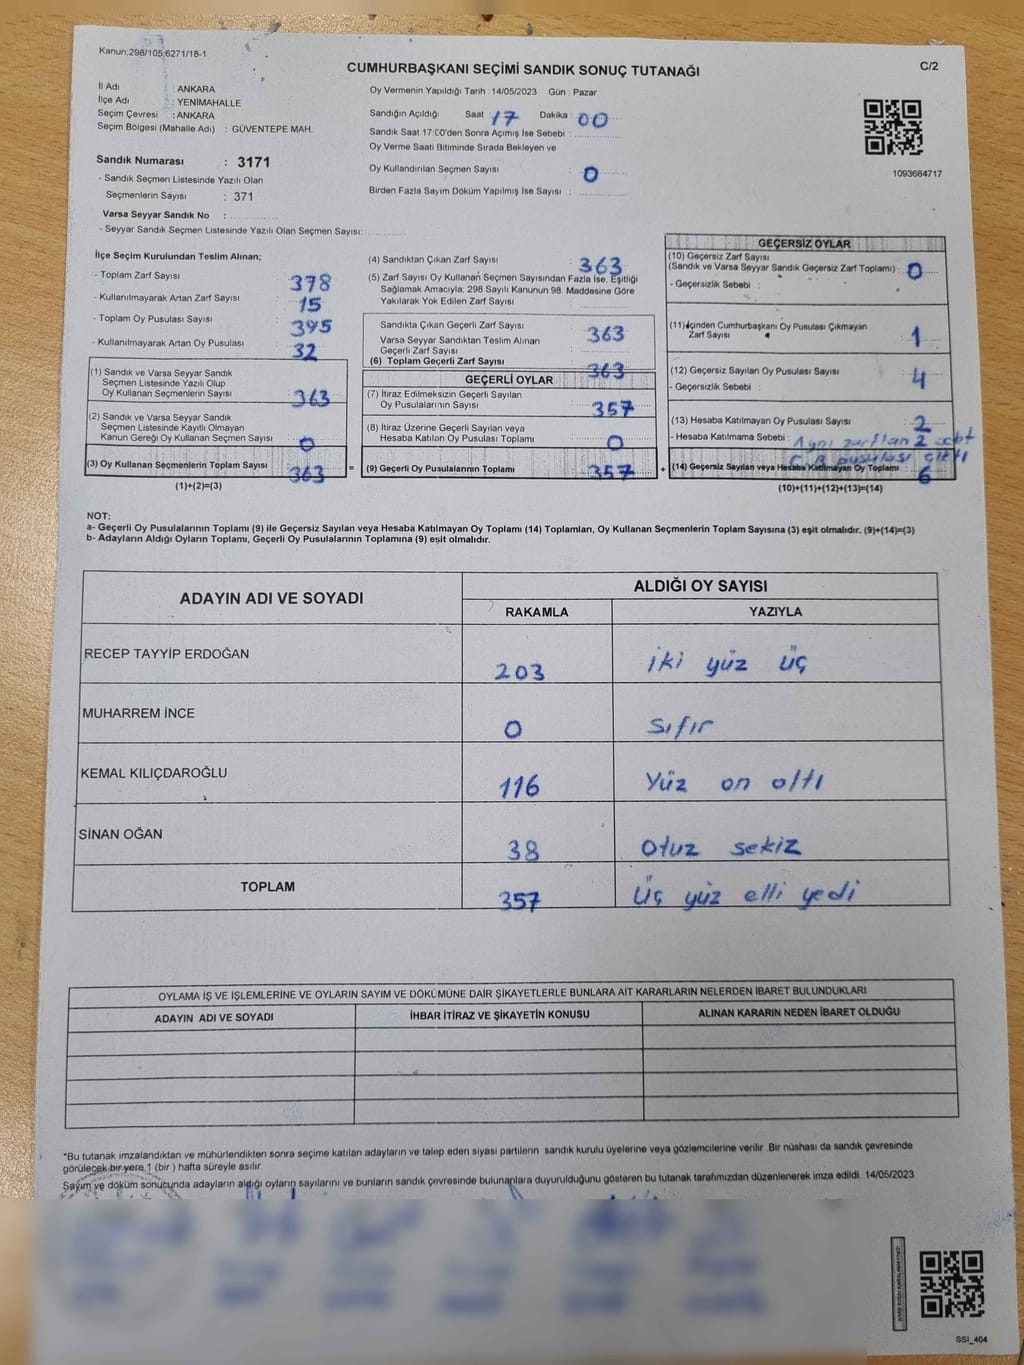 Kanun,298/105,6271/18-1
C/2
CUMHURBAŞKANI SEÇİMİ SANDIK SONUÇ TUTANAĞI
İl Adı : ANKARA
İlçe Adı : YENİMAHALLE
Seçim Çevresi : ANKARA
Seçim Bölgesi (Mahalle Adı) : GÜVENTEPE MAH.
Sandık Numarası : 3171
- Sandık Seçmen Listesinde Yazılı Olan
Seçmenlerin Sayısı : 371
Varsa Seyyar Sandık No :
- Seyyar Sandık Seçmen Listesinde Yazılı Olan Seçmen Sayısı:
Oy Vermenin Yapıldığı Tarih : 14/05/2023 Gün : Pazar
Sandığın Açıldığı Saat 17 Dakika : 00
Sandık Saat 17:00'den Sonra Açımış İse Sebebi :
Oy Verme Saati Bitiminde Sırada Bekleyen ve
Oy Kullandırılan Seçmen Sayısı : 0
Birden Fazla Sayım Döküm Yapılmış İse Sayısı :
1093684717
İlçe Seçim Kurulundan Teslim Alınan;
- Toplam Zarf Sayısı : 378
- Kullanılmayarak Artan Zarf Sayısı : 15
- Toplam Oy Pusulası Sayısı : 395
- Kullanılmayarak Artan Oy Pusulası : 32
(1) Sandık ve Varsa Seyyar Sandık
Seçmen Listesinde Yazılı Olup
Oy Kullanan Seçmenlerin Sayısı : 363
(2) Sandık ve Varsa Seyyar Sandık
Seçmen Listesinde Kayıtlı Olmayan
Kanun Gereği Oy Kullanan Seçmen Sayısı : 0
(3) Oy Kullanan Seçmenlerin Toplam Sayısı : 363
(1)+(2)=(3)
(4) Sandıktan Çıkan Zarf Sayısı : 363
(5) Zarf Sayısı Oy Kullanan Seçmen Sayısından Fazla İse, Eşitliği
Sağlamak Amacıyla; 298 Sayılı Kanunun 98. Maddesine Göre
Yakılarak Yok Edilen Zarf Sayısı :
Sandıkta Çıkan Geçerli Zarf Sayısı : 363
Varsa Seyyar Sandıktan Teslim Alınan
Geçerli Zarf Sayısı :
(6) Toplam Geçerli Zarf Sayısı : 363
GEÇERLİ OYLAR
(7) İtiraz Edilmeksizin Geçerli Sayılan
Oy Pusulalarının Sayısı : 357
(8) İtiraz Üzerine Geçerli Sayılan veya
Hesaba Katılan Oy Pusulası Toplamı : 0
= (9) Geçerli Oy Pusulalarının Toplamı : 357 +
GEÇERSİZ OYLAR
(10) Geçersiz Zarf Sayısı
(Sandık ve Varsa Seyyar Sandık Geçersiz Zarf Toplamı) : 0
- Geçersizlik Sebebi :
(11) İçinden Cumhurbaşkanı Oy Pusulası Çıkmayan
Zarf Sayısı : 1
(12) Geçersiz Sayılan Oy Pusulası Sayısı : 4
- Geçersizlik Sebebi :
(13) Hesaba Katılmayan Oy Pusulası Sayısı : 2
- Hesaba Katılmama Sebebi : Aynı zarftan 2 adet
C.B pusulası çıktı
(14) Geçersiz Sayılan veya Hesaba Katılmayan Oy Toplamı : 6
(10)+(11)+(12)+(13)=(14)
NOT:
a- Geçerli Oy Pusulalarının Toplamı (9) ile Geçersiz Sayılan veya Hesaba Katılmayan Oy Toplamı (14) Toplamları, Oy Kullanan Seçmenlerin Toplam Sayısına (3) eşit olmalıdır. (9)+(14)=(3)
b- Adayların Aldığı Oyların Toplamı, Geçerli Oy Pusulalarının Toplamına (9) eşit olmalıdır.
ADAYIN ADI VE SOYADI ALDIĞI OY SAYISI
RAKAMLA YAZIYLA
RECEP TAYYİP ERDOĞAN 203 iki yüz üç
MUHARREM İNCE 0 sıfır
KEMAL KILIÇDAROĞLU 116 Yüz on altı
SİNAN OĞAN 38 Otuz sekiz
TOPLAM 357 Üç yüz elli yedi
OYLAMA İŞ VE İŞLEMLERİNE VE OYLARIN SAYIM VE DÖKÜMÜNE DAİR ŞİKAYETLERLE BUNLARA AİT KARARLARIN NELERDEN İBARET BULUNDUKLARI
ADAYIN ADI VE SOYADI İHBAR İTİRAZ VE ŞİKAYETİN KONUSU ALINAN KARARIN NEDEN İBARET OLDUĞU
*Bu tutanak imzalandıktan ve mühürlendikten sonra seçime katılan adayların ve talep eden siyasi partilerin sandık kurulu üyelerine veya gözlemcilerine verilir. Bir nüshası da sandık çevresinde
görülecek bir yere 1 (bir ) hafta süreyle asılır.
Sayım ve döküm sonucunda adayların aldığı oyların sayılarını ve bunların sandık çevresinde bulunanlara duyurulduğunu gösteren bu tutanak tarafımızdan düzenlenerek imza edildi. 14/05/2023
SSI_404